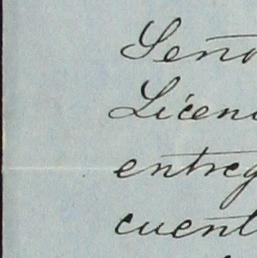 Seño
Licen
entreg
cuent